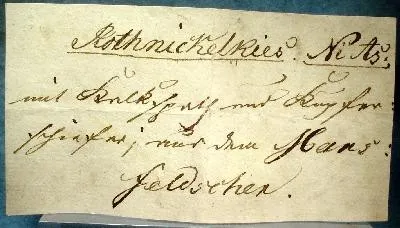 Rothnickelkies. Ni As;
mit Kalkspath und Kupfer-
schiefer; aus dem Mans-
feldschen.